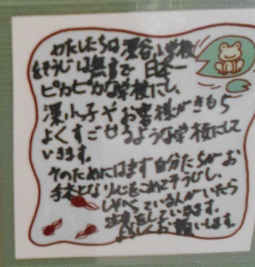 わたしたちは深谷小学校
をそうじは無言で日本一
ピカピカな学校にし、
深小子やお客様がきもち
よくすごせるような学校にして
いきます。
そのためにはまず自分たちがお
手本となり心をこめてそうじし、
しゃべっている人がいたら
注意をしていきます。
よろしくお願いします。